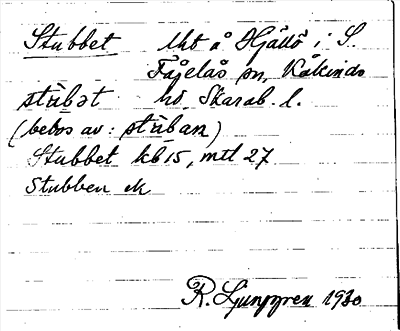 Stubbet lht å Hjällö i S.
Fågelås sn, Kåkinds
stùbət hd. Skarab. l.
(bebos av: stùban)
Stubbet kb 15, mtl 27
Stubben ek
R. Ljunggren 1930